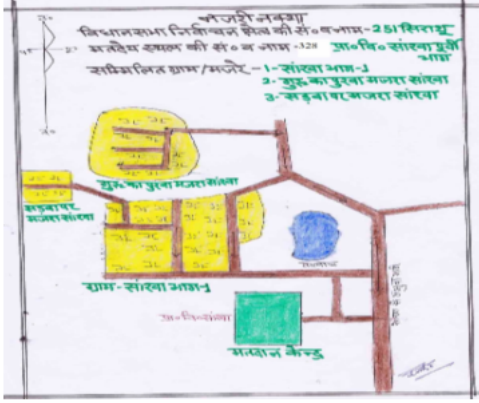 नजरी नक्शा
विधानसभा निर्वाचन क्षेत्र की सं० व नाम - 251 सिराथू
मतदेय स्थल की सं० व नाम - 328 प्रा० वि० सांरवा पूर्वी भाग
सम्मिलित ग्राम/मजरे - 1- सांरवा भाग-1
2- गुरु का पुरवा मजरा सांरवा
3- सड़वा पर मजरा सांरवा
गुरु का पुरवा मजरा सांरवा
सड़वा पर
मजरा सांरवा
तालाब
ग्राम - सांरवा भाग-1
प्रा० वि० सांरवा
मतदान केन्द्र